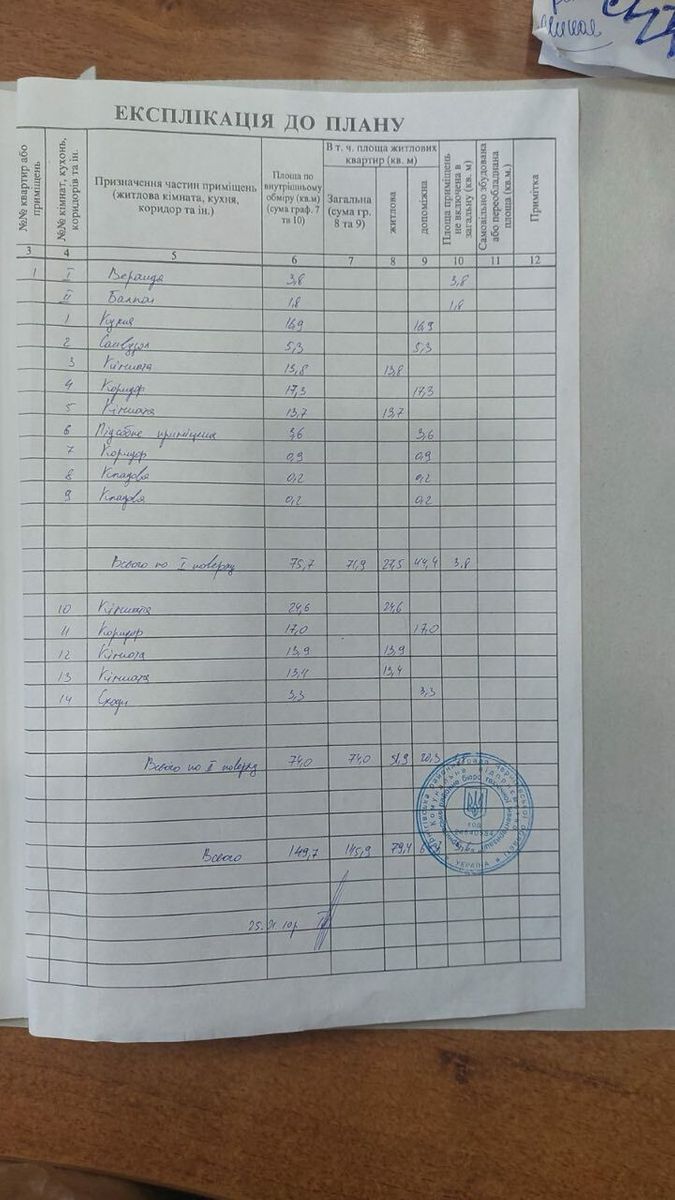 ЕКСПЛІКАЦІЯ ДО ПЛАНУ
№№ квартир або приміщень
№№ кімнат, кухонь, коридорів та ін.
Призначення частин приміщень (житлова кімната, кухня, коридор та ін.)
Площа по внутрішньому обміру (кв.м) (сума граф. 7 та 10)
В т. ч. площа житлових квартир (кв. м)
Загальна (сума гр. 8 та 9)
житлова
допоміжна
Площа приміщень не включена в загальну (кв. м)
Самовільно збудована або переобладнана площа (кв.м.)
Примітка
3 4 5 6 7 8 9 10 11 12
1 I Веранда 3,8 3,8
II Балкон 1,8 1,8
1 Кухня 16,9 16,9
2 Санвузол 5,3 5,3
3 Кімната 13,8 13,8
4 Коридор 17,3 17,3
5 Кімната 13,7 13,7
6 Підсобне приміщення 3,6 3,6
7 Коридор 0,9 0,9
8 Кладова 0,2 0,2
9 Кладова 0,2 0,2
Всього по I поверху 75,7 71,9 27,5 44,4 3,8
10 Кімната 24,6 24,6
11 Коридор 17,0 17,0
12 Кімната 13,9 13,9
13 Кімната 13,4 13,4
14 Сходи 3,3 3,3
Всього по II поверху 74,0 74,0 51,9 20,3
Всього 149,7 145,9 79,4
УКРАЇНА